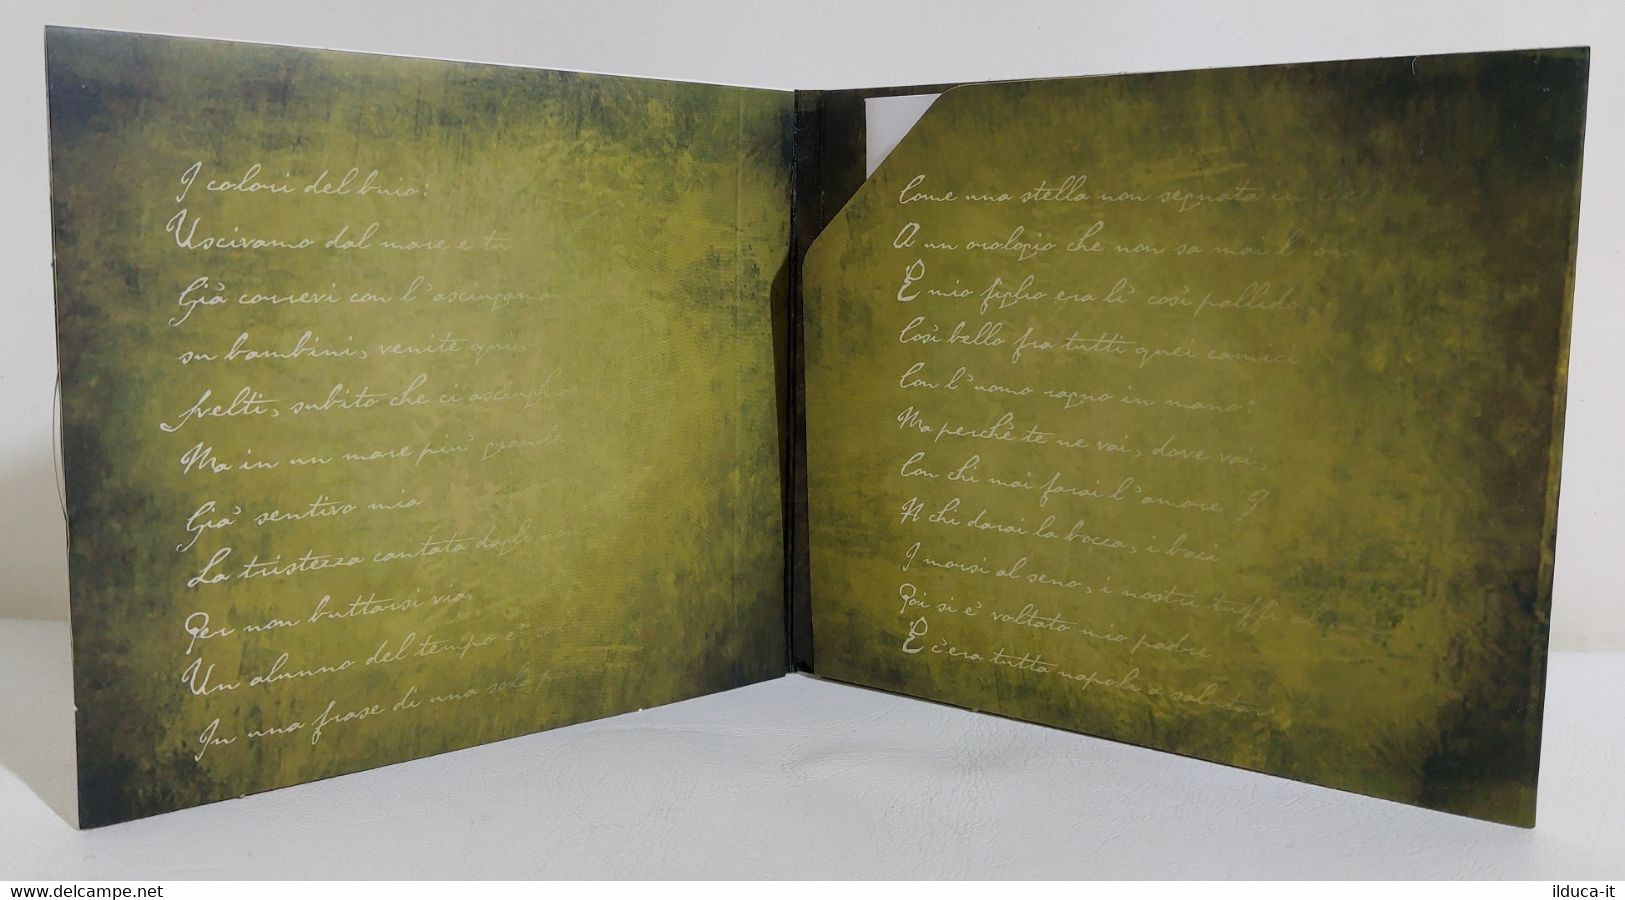 I colori del buio:
Uscivamo dal mare e tu
Già correvi con l'asciugaman
su bambini, venite qui,
svelti, subito che ci asciugh
Ma in un mare piu' grande
Gia' sentivo mia
La tristezza cantata dagli
Per non buttarsi via.
Un alunno del tempo e' co
In una frase di una sola p
Come una stella non segnata in ciel
A un orologio che non sa mai l'ora
E mio figlio era li' così pallido
Così bello fra tutti quei camici
Con l'uomo ragno in mano:
Ma perchè te ne vai, dove vai,
Con chi mai farai l'amore?
A chi darai la bocca, i baci
I morsi al seno, i nostri tuffi
Poi si e' voltato mio padre
E c'era tutta napoli a salutar
www.delcampe.net
ilduca-it